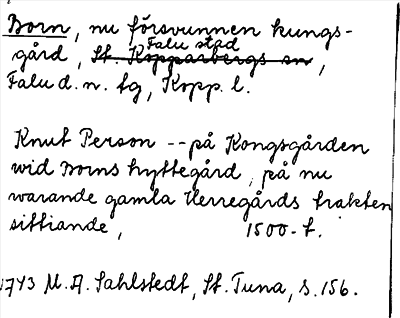 Born, nu försvunnen kungs-
gård, St. Kopparbergs sn, Falu stad
Falu d.n. tg, Kopp. l.
Knut Person -- på Kongsgården
wid Borns hyttegård, på nu
warande gamla Herregårds trakten
sittiande, 1500-t.
1743 M. A. Sahlstedt, St. Tuna, s. 156.